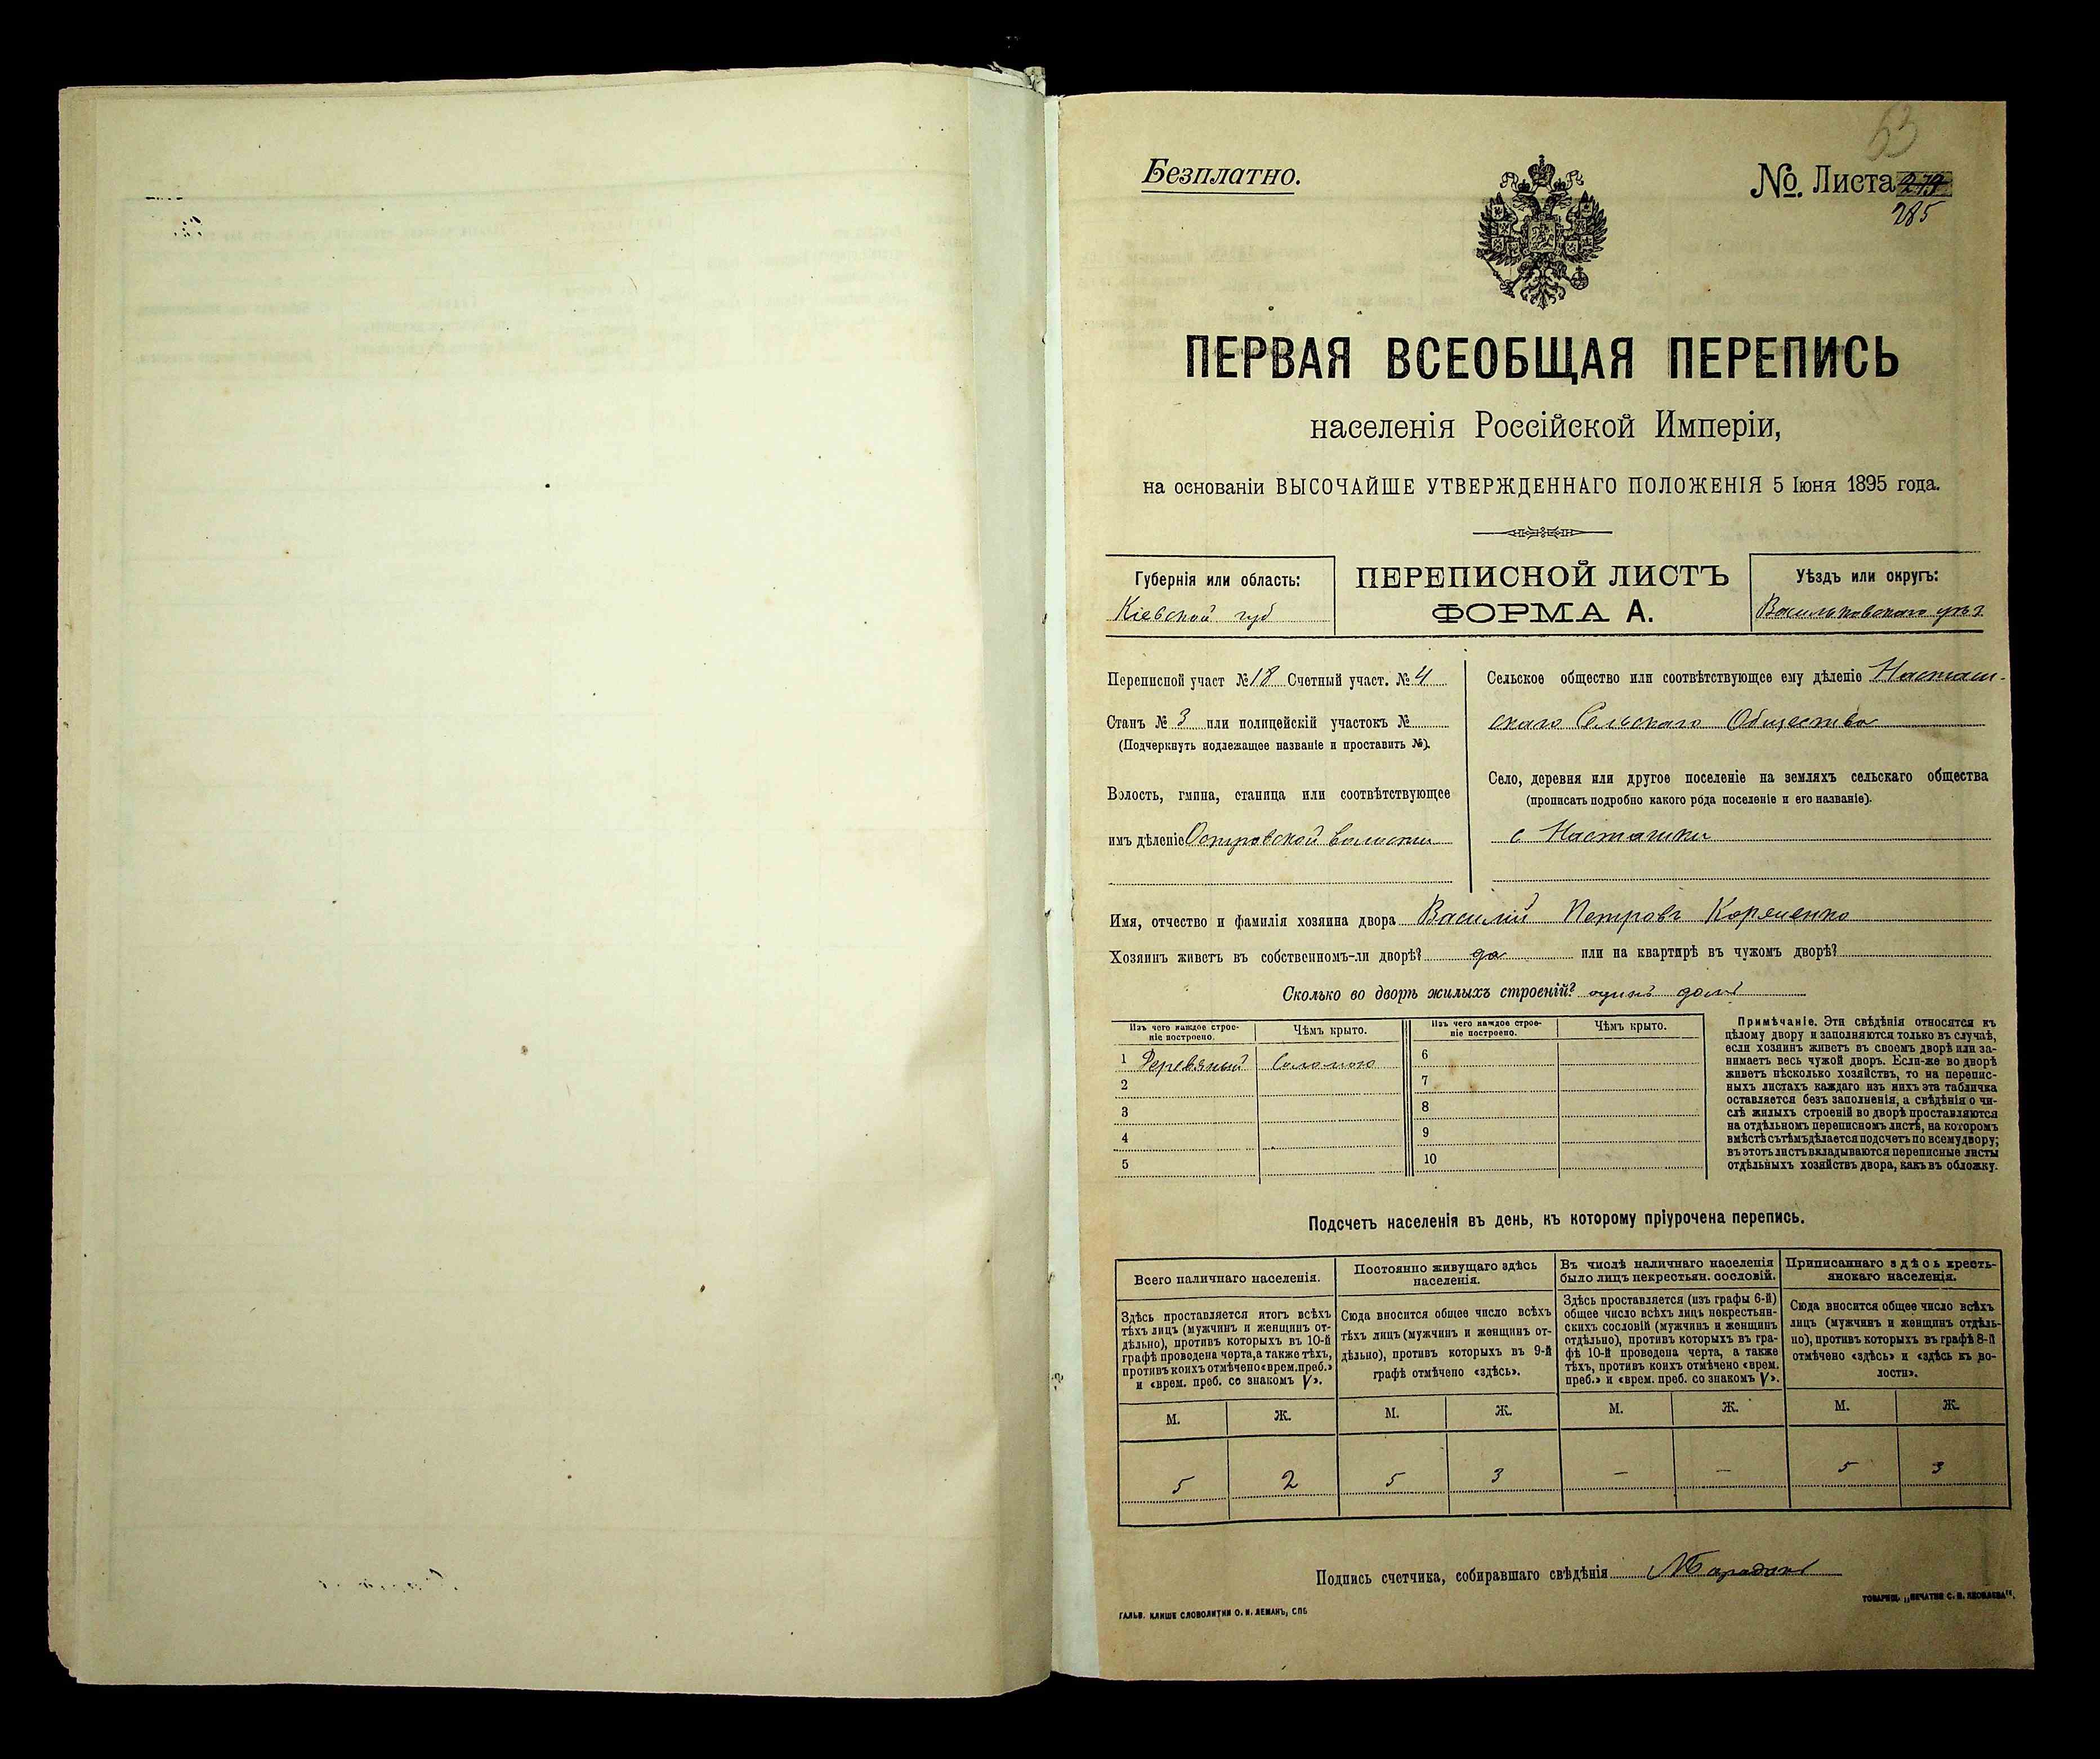 53
Безплатно.
№. Листа 273
285
ПЕРВАЯ ВСЕОБЩАЯ ПЕРЕПИСЬ
населенія Россійской Имперіи,
на основаніи ВЫСОЧАЙШЕ УТВЕРЖДЕННАГО ПОЛОЖЕНІЯ 5 Іюня 1895 года.
Губернія или область:
Кіевской губ
ПЕРЕПИСНОЙ ЛИСТЪ
ФОРМА А.
Уѣздъ или округъ:
Васильковскаго уѣз.
Переписной участ № 18 Счетный участ. № 4
Станъ № 3 или полицейскій участокъ №
(Подчеркнуть подлежащее названіе и проставить №).
Волость, гмина, станица или соотвѣтствующее
имъ дѣленіе Островской волости
Сельское общество или соотвѣтствующее ему дѣленіе Насташ-
скаго Сельскаго Общества
Село, деревня или другое поселеніе на земляхъ сельскаго общества
(прописать подробно какого рода поселеніе и его названіе).
с Насташки
Имя, отчество и фамилія хозяина двора Василій Петровъ
Хозяинъ живетъ въ собственномъ-ли дворѣ? да или на квартирѣ въ чужомъ дворѣ?
Сколько во дворѣ жилыхъ строеній? одинъ домъ
Изъ чего каждое строе-
ніе построено.
Чѣмъ крыто.
Изъ чего каждое строе-
ніе построено.
Чѣмъ крыто.
1 Деревяный Соломою
2
3
4
5
6
7
8
9
10
Примѣчаніе. Эти свѣдѣнія относятся къ
цѣлому двору и заполняются только въ случаѣ,
если хозяинъ живетъ въ своемъ дворѣ или за-
нимаетъ весь чужой дворъ. Если-же во дворѣ
живетъ нѣсколько хозяйствъ, то на перепис-
ныхъ листахъ каждаго изъ нихъ эта табличка
оставляется безъ заполненія, а свѣдѣнія о чи-
слѣ жилыхъ строеній во дворѣ проставляются
на отдѣльномъ переписномъ листѣ, на которомъ
вмѣстѣ съ тѣмъ дѣлается подсчетъ по всему двору;
въ этотъ листъ вкладываются переписные листы
отдѣльныхъ хозяйствъ двора, какъ въ обложку.
Подсчетъ населенія въ день, къ которому пріурочена перепись.
Всего наличнаго населенія.
Постоянно живущаго здѣсь
населенія.
Въ числѣ наличнаго населенія
было лицъ некрестьян. сословій.
Приписаннаго здѣсь кресть-
янскаго населенія.
Здѣсь проставляется итогъ всѣхъ
тѣхъ лицъ (мужчинъ и женщинъ от-
дѣльно), противъ которыхъ въ 10-й
графѣ проведена черта, а также тѣхъ,
противъ коихъ отмѣчено «врем. преб.»
и «врем. преб. со знакомъ V».
Сюда вносится общее число всѣхъ
тѣхъ лицъ (мужчинъ и женщинъ от-
дѣльно), противъ которыхъ въ 9-й
графѣ отмѣчено «здѣсь».
Здѣсь проставляется (изъ графы 6-й)
общее число всѣхъ лицъ некрестьян-
скихъ сословій (мужчинъ и женщинъ
отдѣльно), противъ которыхъ въ гра-
фѣ 10-й проведена черта, а также
тѣхъ, противъ коихъ отмѣчено «врем.
преб.» и «врем. преб. со знакомъ V».
Сюда вносится общее число всѣхъ
лицъ (мужчинъ и женщинъ отдѣль-
но), противъ которыхъ въ графѣ 8-й
отмѣчено «здѣсь» и «здѣсь къ во-
лости».
М. Ж. М. Ж. М. Ж. М. Ж.
5 2 5 3 – – 5 3
Подпись счетчика, собиравшаго свѣдѣнія
ГАЛЬВ. КЛИШЕ СЛОВОЛИТНИ О. И. ЛЕМАНЪ, СПБ
ТОВАРИЩ. „ПЕЧАТНЯ С. П. ЯКОВЛЕВА“.